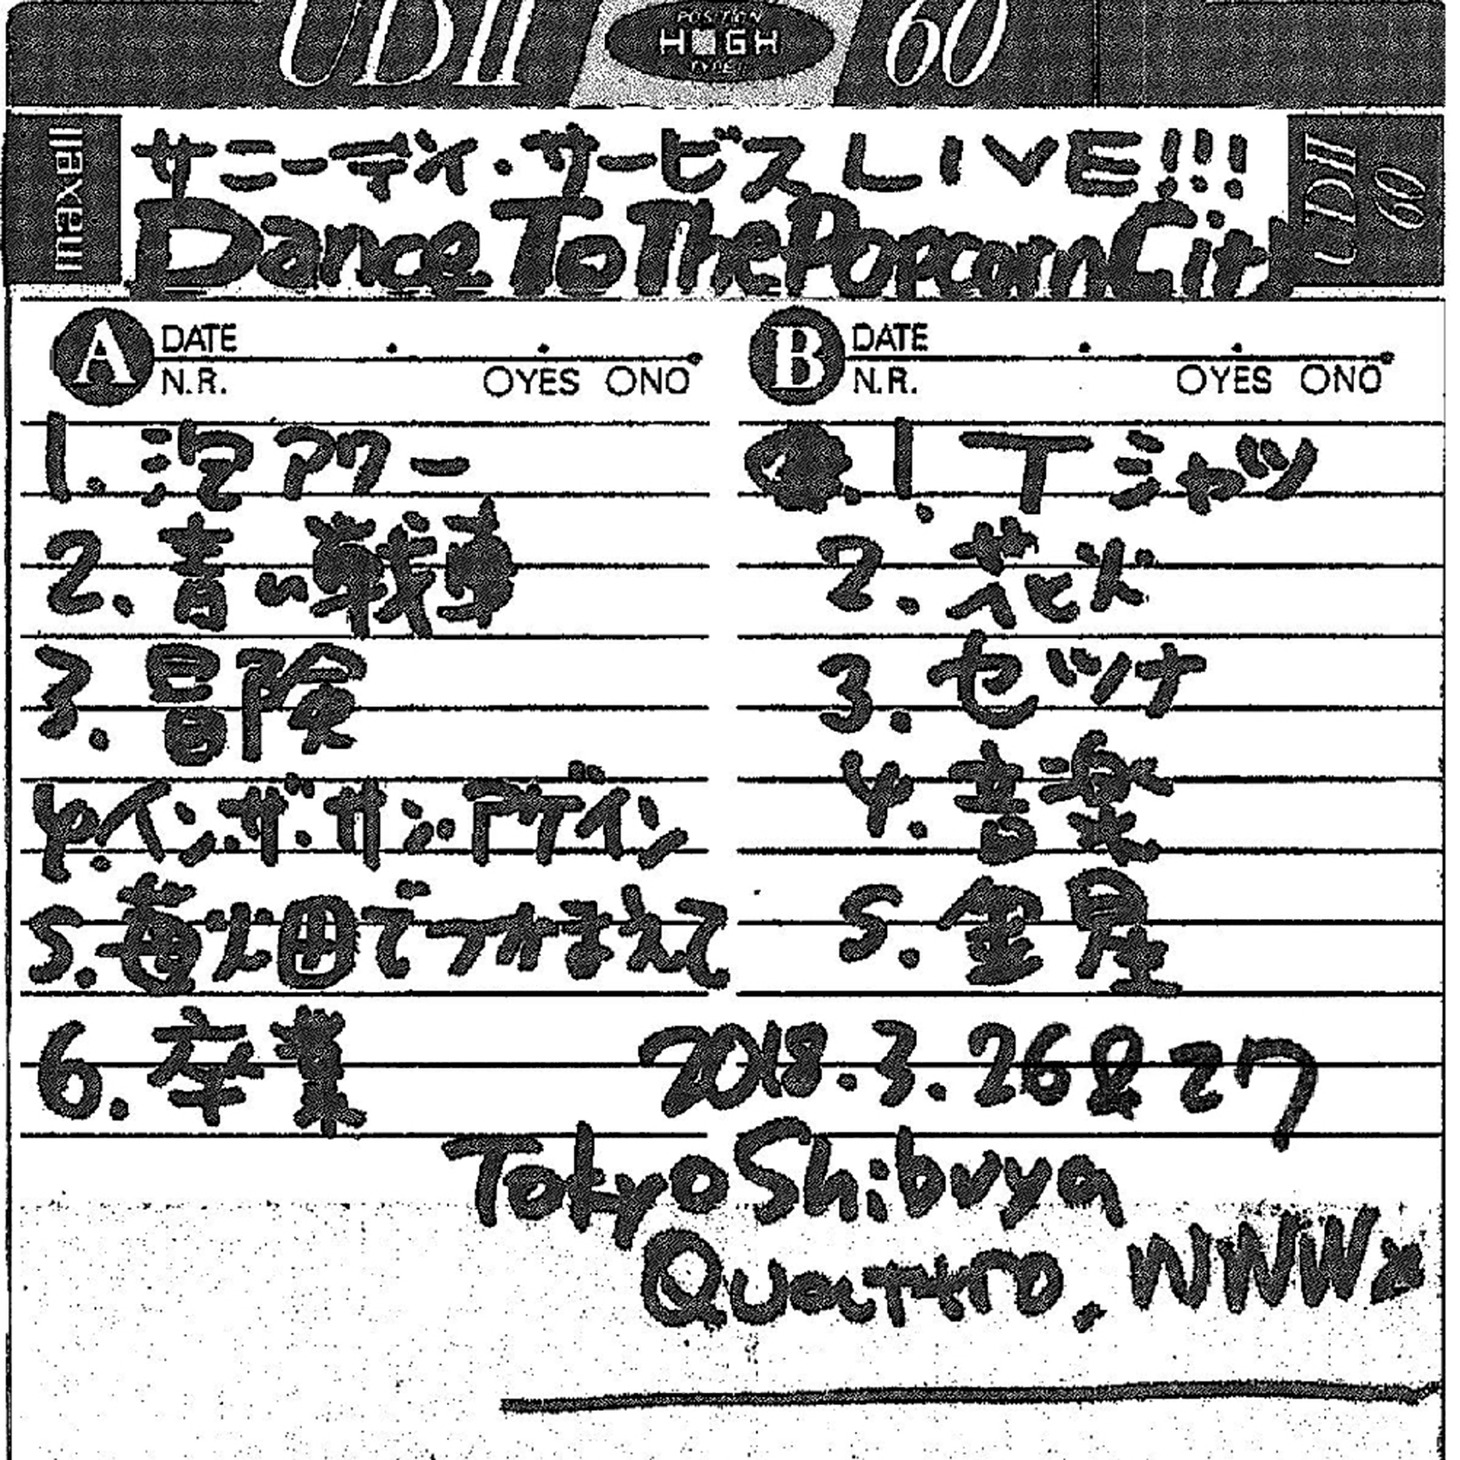 UDII POSITION HIGH TYPE II 60
maxell
サニーデイ・サービス LIVE!!!
Dance To The Popcorn City
UDII 60
A DATE
N.R. ○YES ○NO
1. 泡アワー
2. 青い戦車
3. 冒険
4. イン・ザ・サン・アゲイン
5. 苺畑でつかまえて
6. 卒業
B DATE
N.R. ○YES ○NO
1. Tシャツ
2. 花火
3. セツナ
4. 音楽
5. 金星
2018.3.26&27
Tokyo Shibuya
Quattro, WWWx